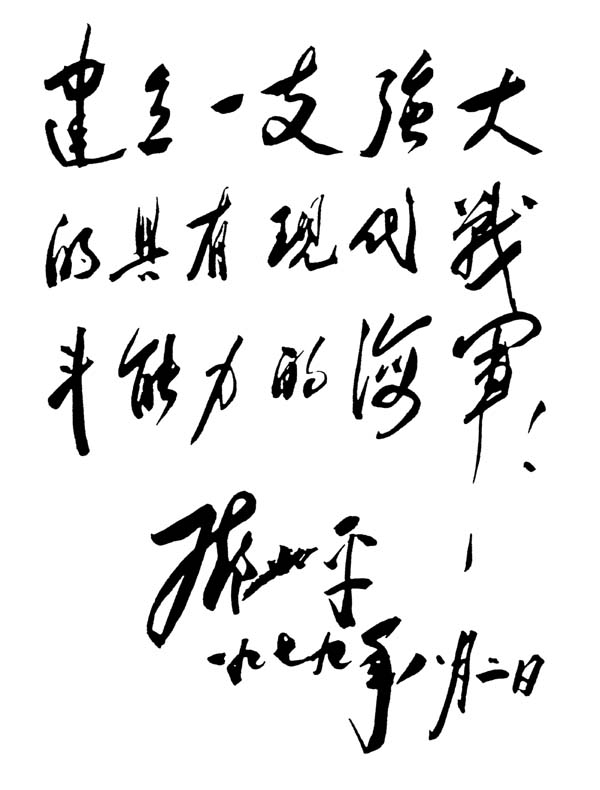 建立一支強大
的具有現代戰
斗能力的海軍！
邓小平
一九七九年八月二日